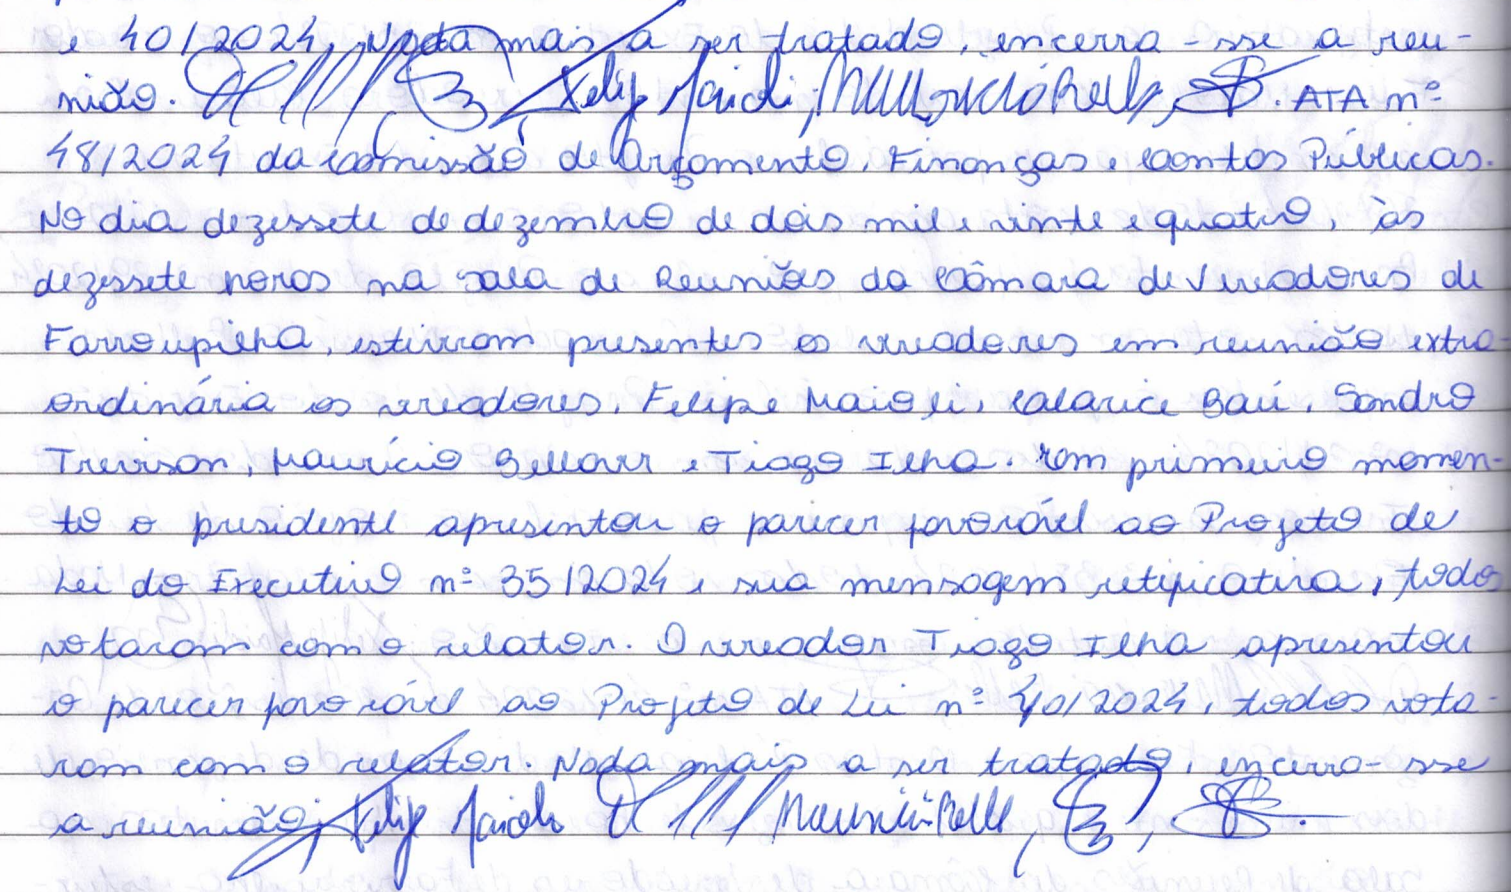 e 40/2024, Nada mais a ser tratado, encerra-sse a reu-
nião. Felip Maioli, ATA nº
48/2024 da Comissão de Orçamento, Finanças e Contas Públicas.
No dia dezessete de dezembro de dois mil e vinte e quatro, às
dezessete horas na Sala de Reuniões da Câmara de Vereadores de
Farroupilha, estiveram presentes os vereadores em reunião extra-
ordinária os vereadores, Felipe Maioli, Calarice Baú, Sandro
Trevisan, Maurício Bellaver e Tiago Ilha. Em primeiro momen-
to o presidente apresentou o parecer favorável ao Projeto de
Lei do Executivo nº 35/2024 e sua mensagem retificativa, todos
votaram com o relator. O vereador Tiago Ilha apresentou
o parecer favorável ao Projeto de Lei nº 40/2024, todos vota-
ram com o relator. Nada mais a ser tratado, encerra-sse
a reunião, Felip Maioli